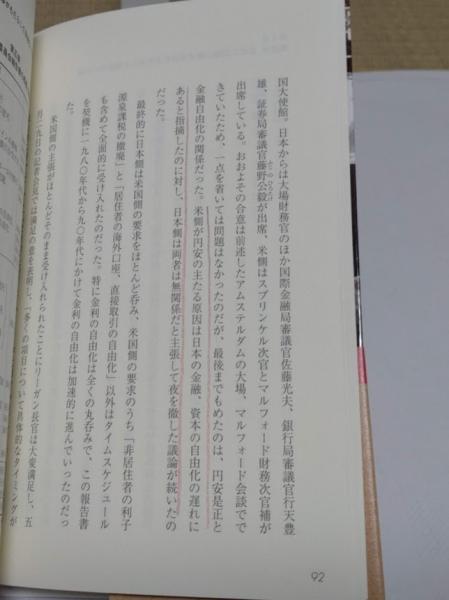 国大使館。日本からは大場財務官のほか国際金融局審議官佐藤光夫、銀行局審議官行天豊
雄、証券局審議官藤野公毅が出席、米側はスプリンケル次官とマルフォード財務次官補が
ふじのひろたけ
出席している。おおよその合意は前述したアムステルダムの大場、マルフォード会談でで
きていたため、一点を省いては問題はなかったのだが、最後までもめたのは、円安是正と
金融自由化の関係だった。米側が円安の主たる原因は日本の金融、資本の自由化の遅れに
あると指摘したのに対し、日本側は両者は無関係だと主張して夜を徹した議論が続いたの
だった。
最終的に日本側は米国側の要求をほとんど呑み、米国側の要求のうち「非居住者の利子
源泉課税の撤廃」と「居住者の海外口座、直接取引の自由化」以外はタイムスケジュール
も含めて全面的に受け入れたのだった。特に金利の自由化は全くの丸呑みで、この報告書
を契機に一九八〇年代から九〇年代にかけて金利の自由化は加速的に進んでいったのだっ
た。
米国側の主張がほとんどそのまま受け入れられたことにリーガン長官は大変満足し、五
月二九日の記者会見では満足の意を表明し、「多くの項目について具体的なタイミングが
92